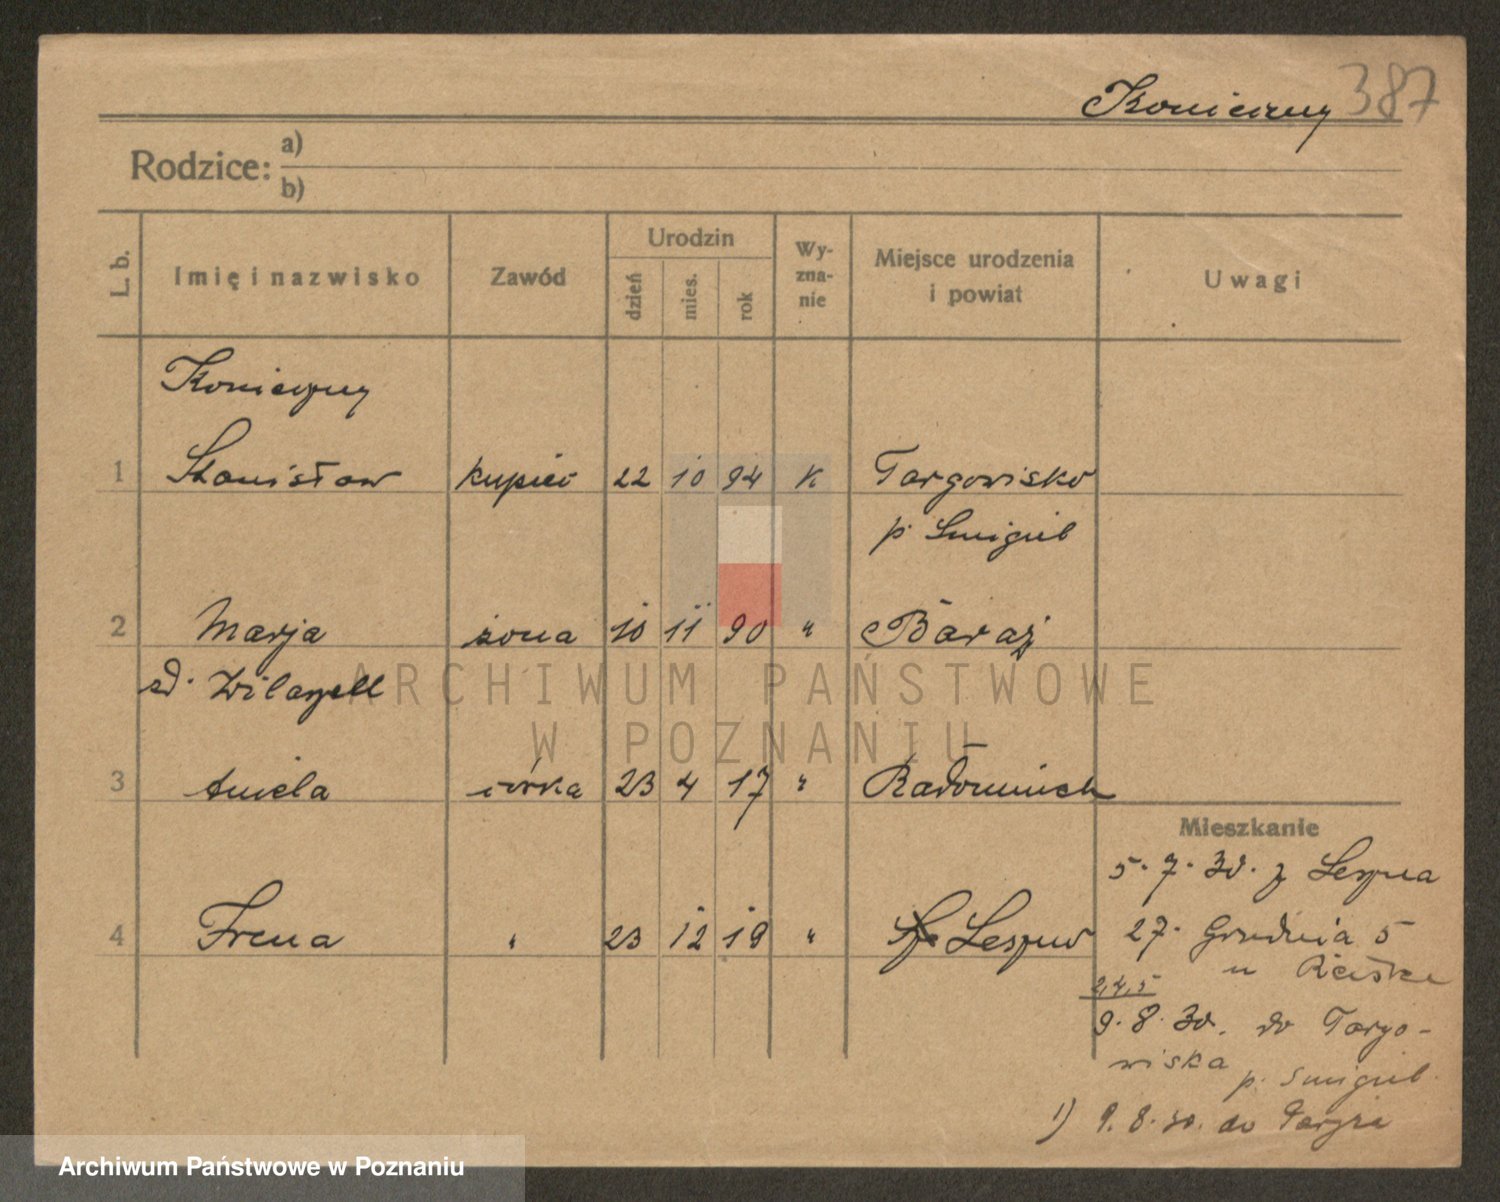 Konieczny 387
Rodzice: a)
b)
L. b.
Imię i nazwisko
Zawód
Urodzin
dzień
mies.
rok
Wy-
zna-
nie
Miejsce urodzenia
i powiat
Uwagi
Konieczny
1 Stanisław kupiec 22 10 94 k. Targowisko
p. Smigiel
2 Marja żona 10 11 90 "
ARCHIWUM PAŃSTWOWE
W POZNANIU
3 Aniela córka 23 4 17 "
Mieszkanie
5. 7. 30. z Leszna
4 Irena " 23 12 19 " Leszno
27. Grudnia 5
u
2,4,5
9. 8. 30. do Targo-
wiska p. Smigiel
1) 9. 8. 30. do
Archiwum Państwowe w Poznaniu